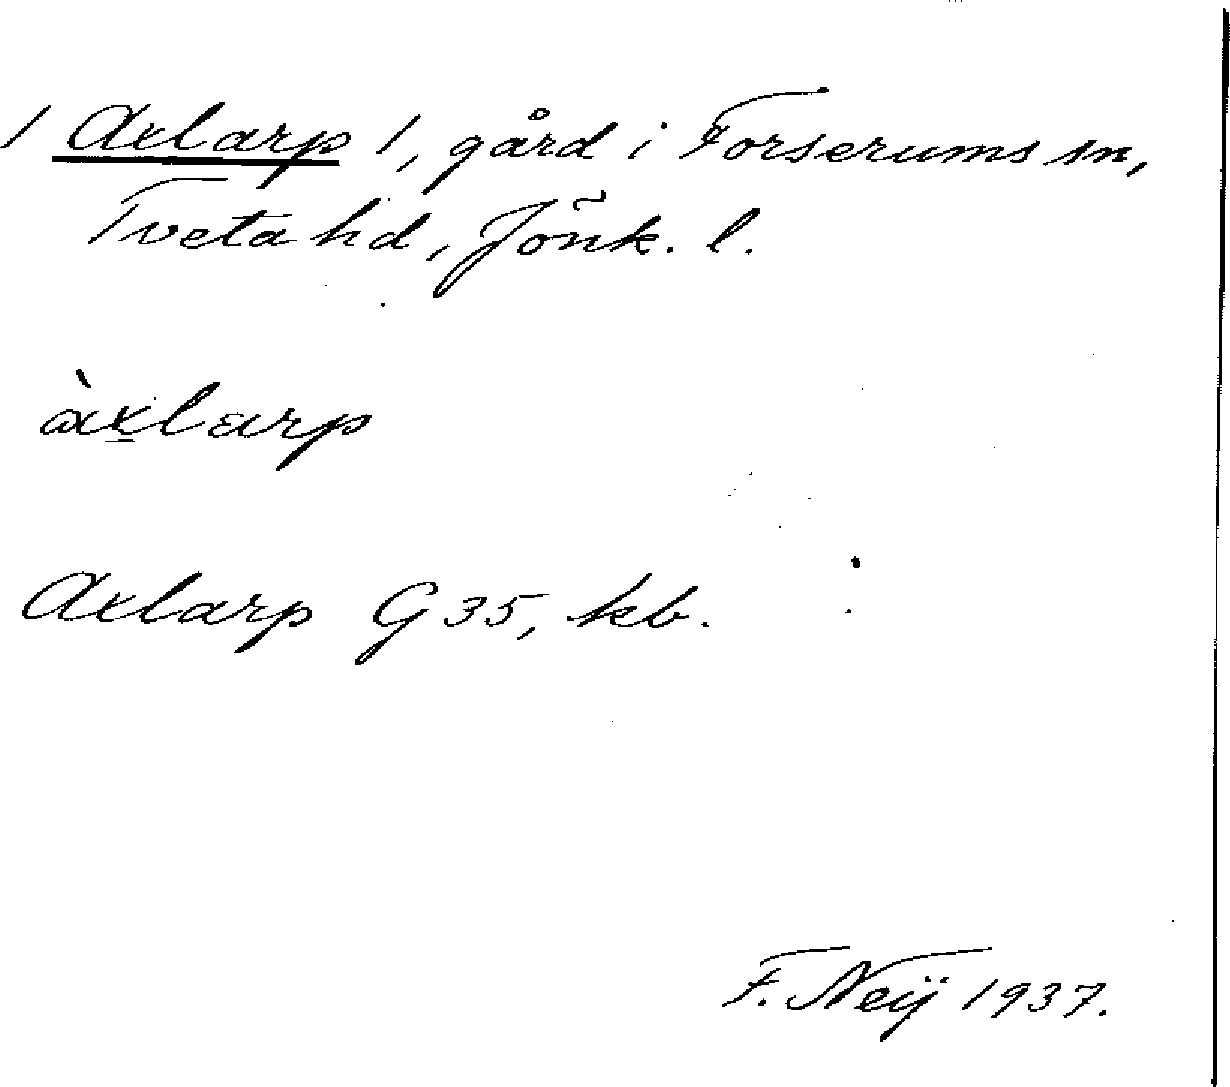 / Axlarp /, gård i Forserums sn,
Tveta hd, Jönk. l.
àxlarp
Axlarp G 35, kb.
F. Neij 1937.